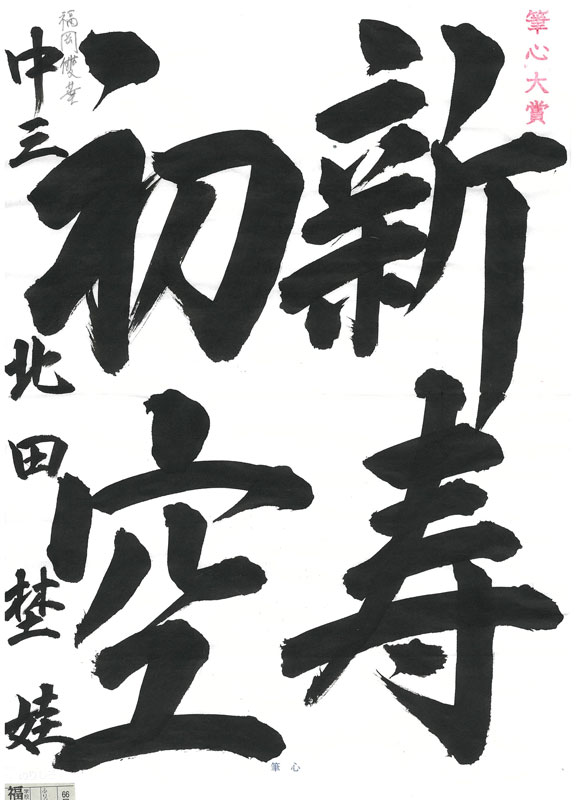 筆心大賞
新寿
初空
福岡雙葉
中三 北田埜娃
筆心
福
66